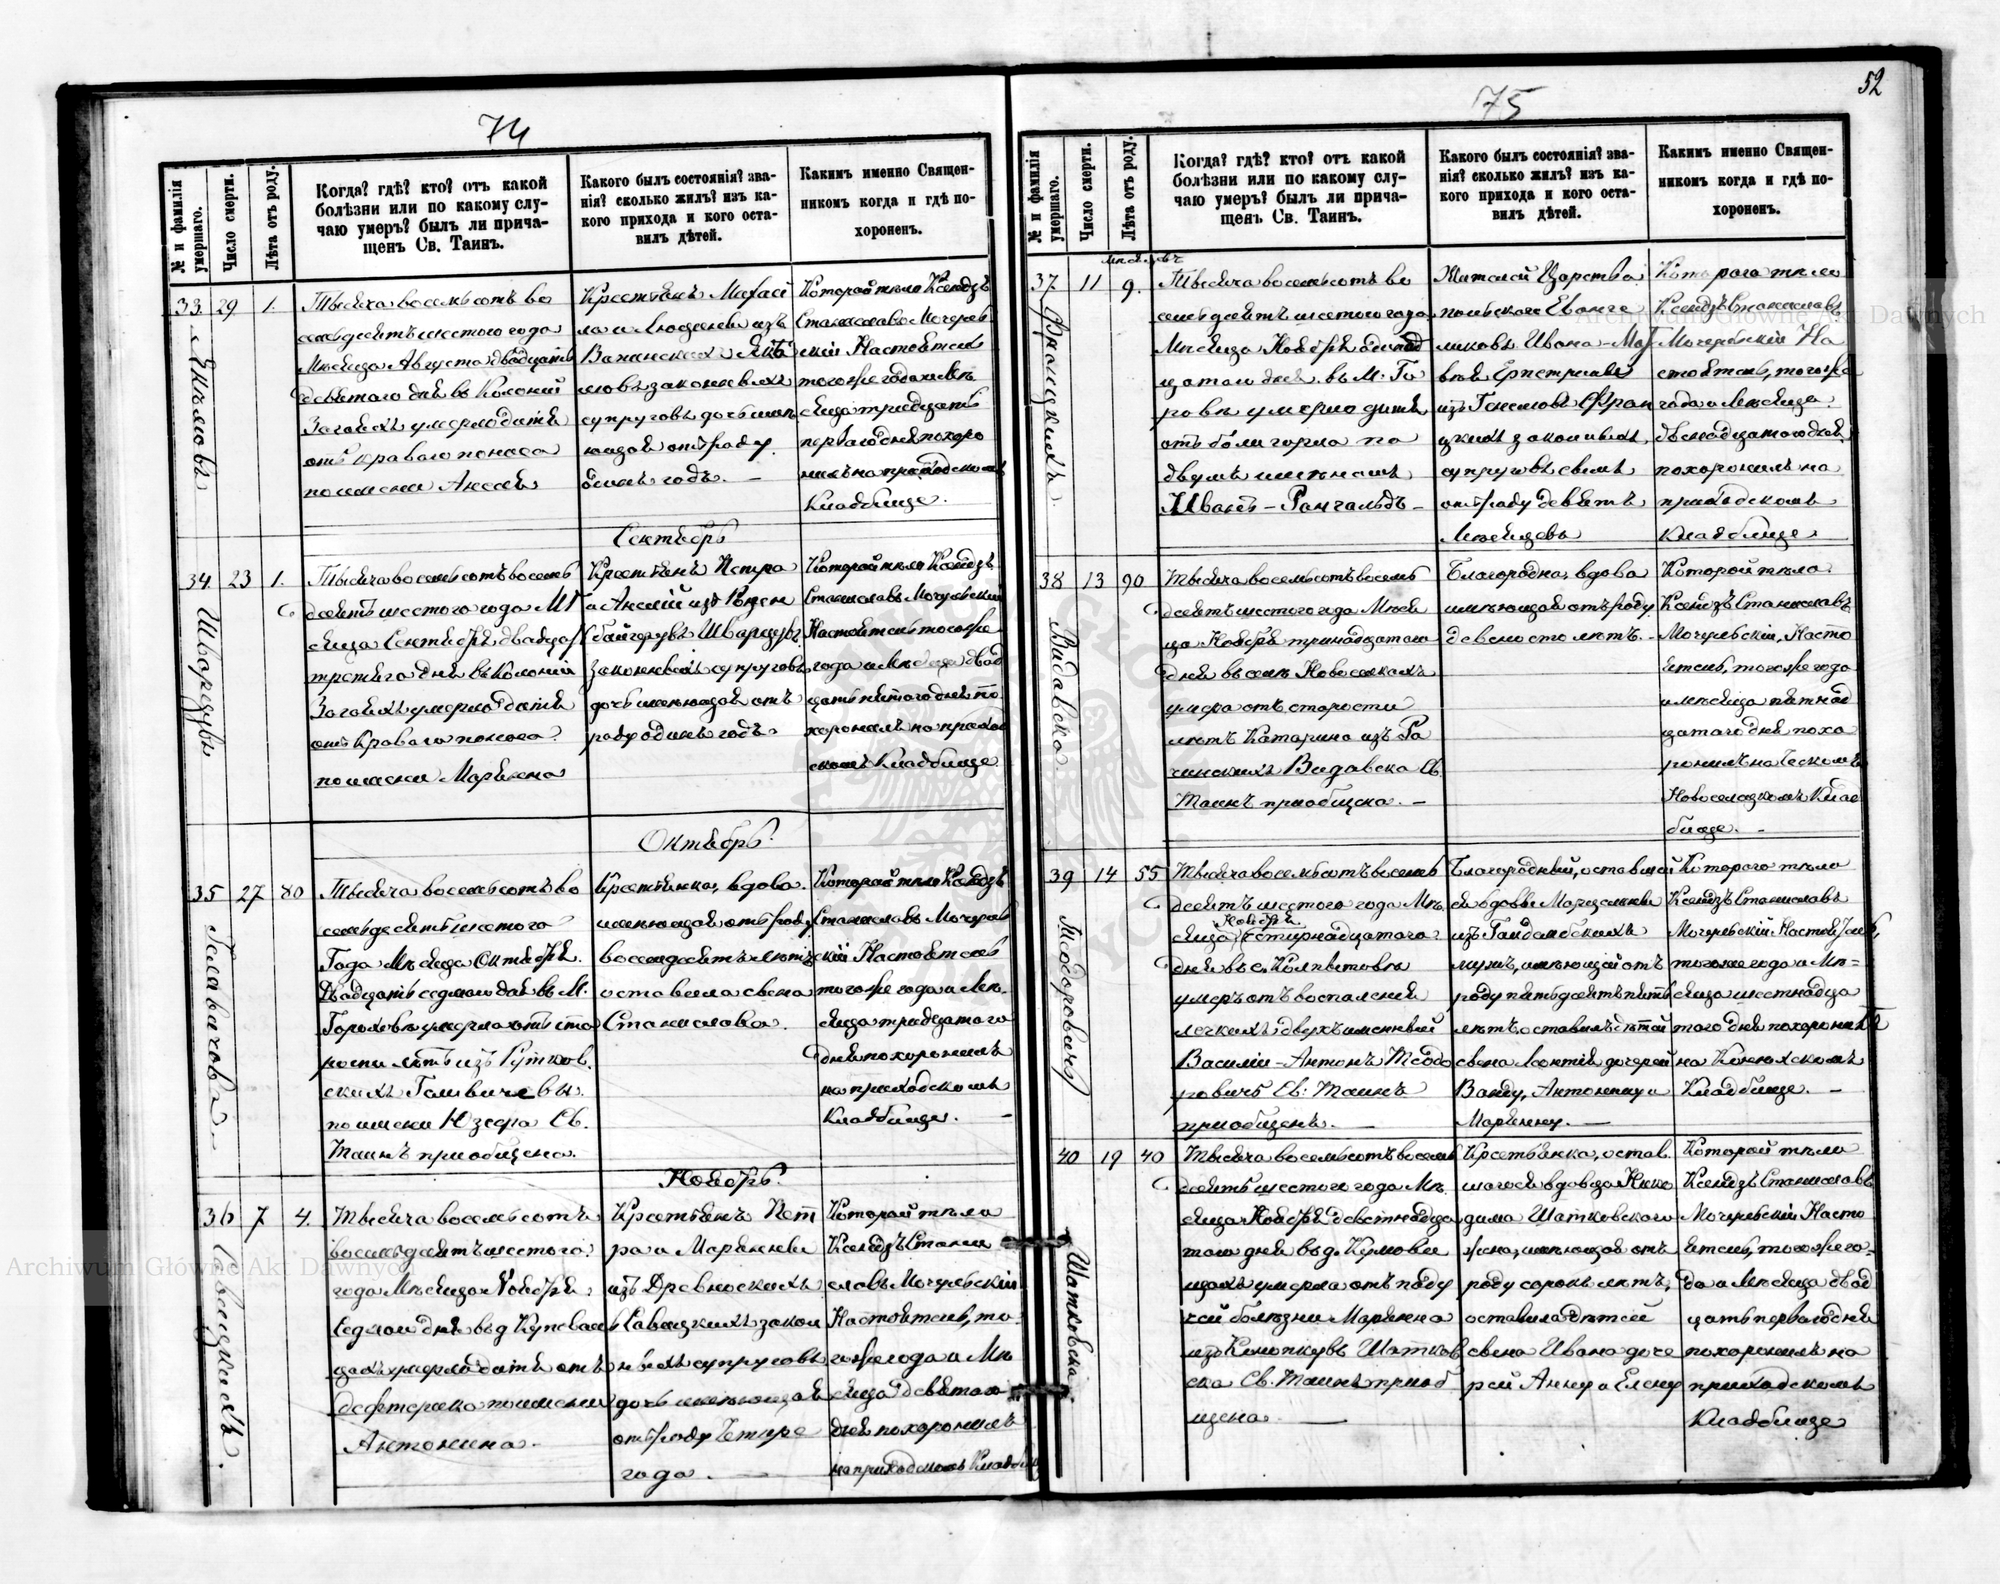 52
74
№ и фамилія умершаго.
Число смерти.
Лѣта отъ роду.
Когда? гдѣ? кто? отъ какой
болѣзни или по какому слу-
чаю умеръ? былъ ли прича-
щенъ Св. Таинъ.
Какого былъ состоянія? зва-
нія? сколько жилъ? изъ ка-
кого прихода и кого оста-
вилъ дѣтей.
Какимъ именно Священ-
никомъ когда и гдѣ по-
хороненъ.
33. 29 1.
Тысяча восемьсотъ во
семьдесятъ шестого года
Мѣсяца Августа двадцать
девятого дня въ Колоніи
Загаяхъ умерло дитя
отъ кроваго поноса
по имени Анеля
Крестьянъ
изъ
законныхъ
супруговъ дочь имѣ
ющая отъ роду
одинъ годъ. —
Которой тѣло Ксендзъ
Станиславъ Мочерев
скій Настоятель
тогоже года и Мѣ
сяца тридцать
перваго дня похоро
нилъ на приходскомъ
Кладбище.
Сентябрь
34. 23 1.
Шварцувъ
Тысяча восемьсотъ восемь
десятъ шестого года Мѣ
сяца Сентября двадцать
третяго дня въ Колоніи
Загаяхъ умерло дитя
отъ Кроваго поноса
по имени Марьяна
Крестьянъ Петра
и Анелiи изъ
Шварцувъ
законныхъ супруговъ
дочь имѣющая отъ
роду одинъ годъ.
Которой тѣло Ксендзъ
Станиславъ Мочеревскій
Настоятель тогоже
года и Мѣсяца двад
цать пятого дня по
хоронилъ на приход
скомъ Кладбище
Октябрь.
35 27 80
Галевичова
Тысяча восемьсотъ во
семьдесятъ шестого
Года Мѣсяца Октября
Двадцать седмого дня въ М.
Гороховѣ умерла отъ ста
рости лѣтъ изъ Рутков
скихъ Галевичевы
по имени Юзефа Св.
Таинъ приобщена.
Крестьянка, вдова.
имѣющая отъ роду
восемдесятъ лѣтъ
оставила сына
Станислава.
Которой тѣло Ксендзъ
Станиславъ Мочерев
скій Настоятель
тогоже года и Мѣ-
сяца тридцатого
дня похоронилъ
на приходскомъ
Кладбище. —
Ноябрь.
36 7 4.
Савицкихъ.
Тысяча восемьсотъ
восемьдесятъ шестого
года Мѣсяца Ноября
Седмого дня въ д.
цахъ умерло дитя отъ
дефтерика по имени
Антонина.
Крестьянъ Пет
ра и Марьянны
изъ Древноскихъ
Савицкихъ закон
ныхъ супруговъ
дочь имѣющая
отъ роду Четыре
года. —
Которой тѣло
Ксендзъ Стани
славъ Мочеревскій
Настоятель, то-
гоже года и Мѣ
сяца девятого
дня похоронилъ
на приходскомъ Кладбищѣ
75
№ и фамилія умершаго.
Число смерти.
Лѣта отъ роду.
Когда? гдѣ? кто? отъ какой
болѣзни или по какому слу-
чаю умеръ? былъ ли прича-
щенъ Св. Таинъ.
Какого былъ состоянія? зва-
нія? сколько жилъ? изъ ка-
кого прихода и кого оста-
вилъ дѣтей.
Какимъ именно Священ-
никомъ когда и гдѣ по-
хороненъ.
мѣсяцевъ
37 11 9.
Францкихъ
Тысяча восемьсотъ во
семьдесятъ шестого года
Мѣсяца Ноября одинад
цатого дня въ М. Го
ровѣ умерло дитя
отъ боли горла по
двумъ именамъ
Иванъ-Ромуальдъ-
Жителей Царства
польского Еванге
ликовъ Ивана-
изъ
законныхъ
супруговъ сынъ
отъ роду девять
Мѣсяцевъ
Которого тѣло
Ксендзъ Станиславъ
Мочеревскій На
стоятель, тогоже
года и Мѣсяца
двенадцатого дня
похоронилъ на
приходскомъ
Кладбище.
38 13 90
Видавска
Тысяча восемьсотъ восемь
десятъ шестого года Мѣся
ца Ноября тринадцатого
дня въ селѣ Новоселкахъ
умерла отъ старости
лѣтъ Катарина изъ Ра
чинскихъ Видавска Св.
Таинъ приобщена. —
Благородна, вдова
имѣющая отъ роду
девяносто лѣтъ. -
Которой тѣло
Ксендзъ Станиславъ
Мочеревскій, Насто
ятель, тогоже года
и Мѣсяца пятнад
цатаго дня похо
ронилъ на
Новоселецкомъ Клад
бище. -
39 14 55
Теодоровичъ
Тысяча восемьсотъ восемь
десятъ шестого года Мѣ
Ноября
сяца Четырнадцатого
дня въ с. Колпитовѣ
умеръ отъ воспаленія
легкихъ двухъименный
Василiй-Антонъ Теодо
ровичъ Св. Таинъ
приобщенъ. —
Благородный, оставшей
ся вдовы Марцелины
изъ Гайдамскихъ
мужъ, имѣющій отъ
роду пятьдесятъ пять
лѣтъ оставилъ дѣтей
сына Леонтiя дочерей
Ванду, Антонину и
Марьянну. —
Которого тѣло
Ксендзъ Станиславъ
Мочеревскій Настоятель,
тогоже года и Мѣ=
сяца шестнадца
того дня похоронилъ
на
Кладбище. —
40 19 40
Шатковска
Тысяча восемьсотъ восемь
десятъ шестого года Мѣ
сяца Ноября девятнадца
того дня въ д.
цахъ умерла отъ паду
чей болѣзни Марьянна
изъ Шатков
ска Св. Таинъ приоб
щена. —
Крестьянка, остав
шагося вдовца Нико
дима Шатковского
жена, имѣющая отъ
роду сорокъ лѣтъ,
оставила дѣтей
сына Ивана доче
рей Анну и Елену
Которой тѣло
Ксендзъ Станиславъ
Мочеревскій Насто
ятель, тогоже го-
да и Мѣсяца двад
цать перваго дня
похоронилъ на
приходскомъ
Кладбище
Archiwum Główne Akt Dawnych
Archiwum Główne Akt Dawnych